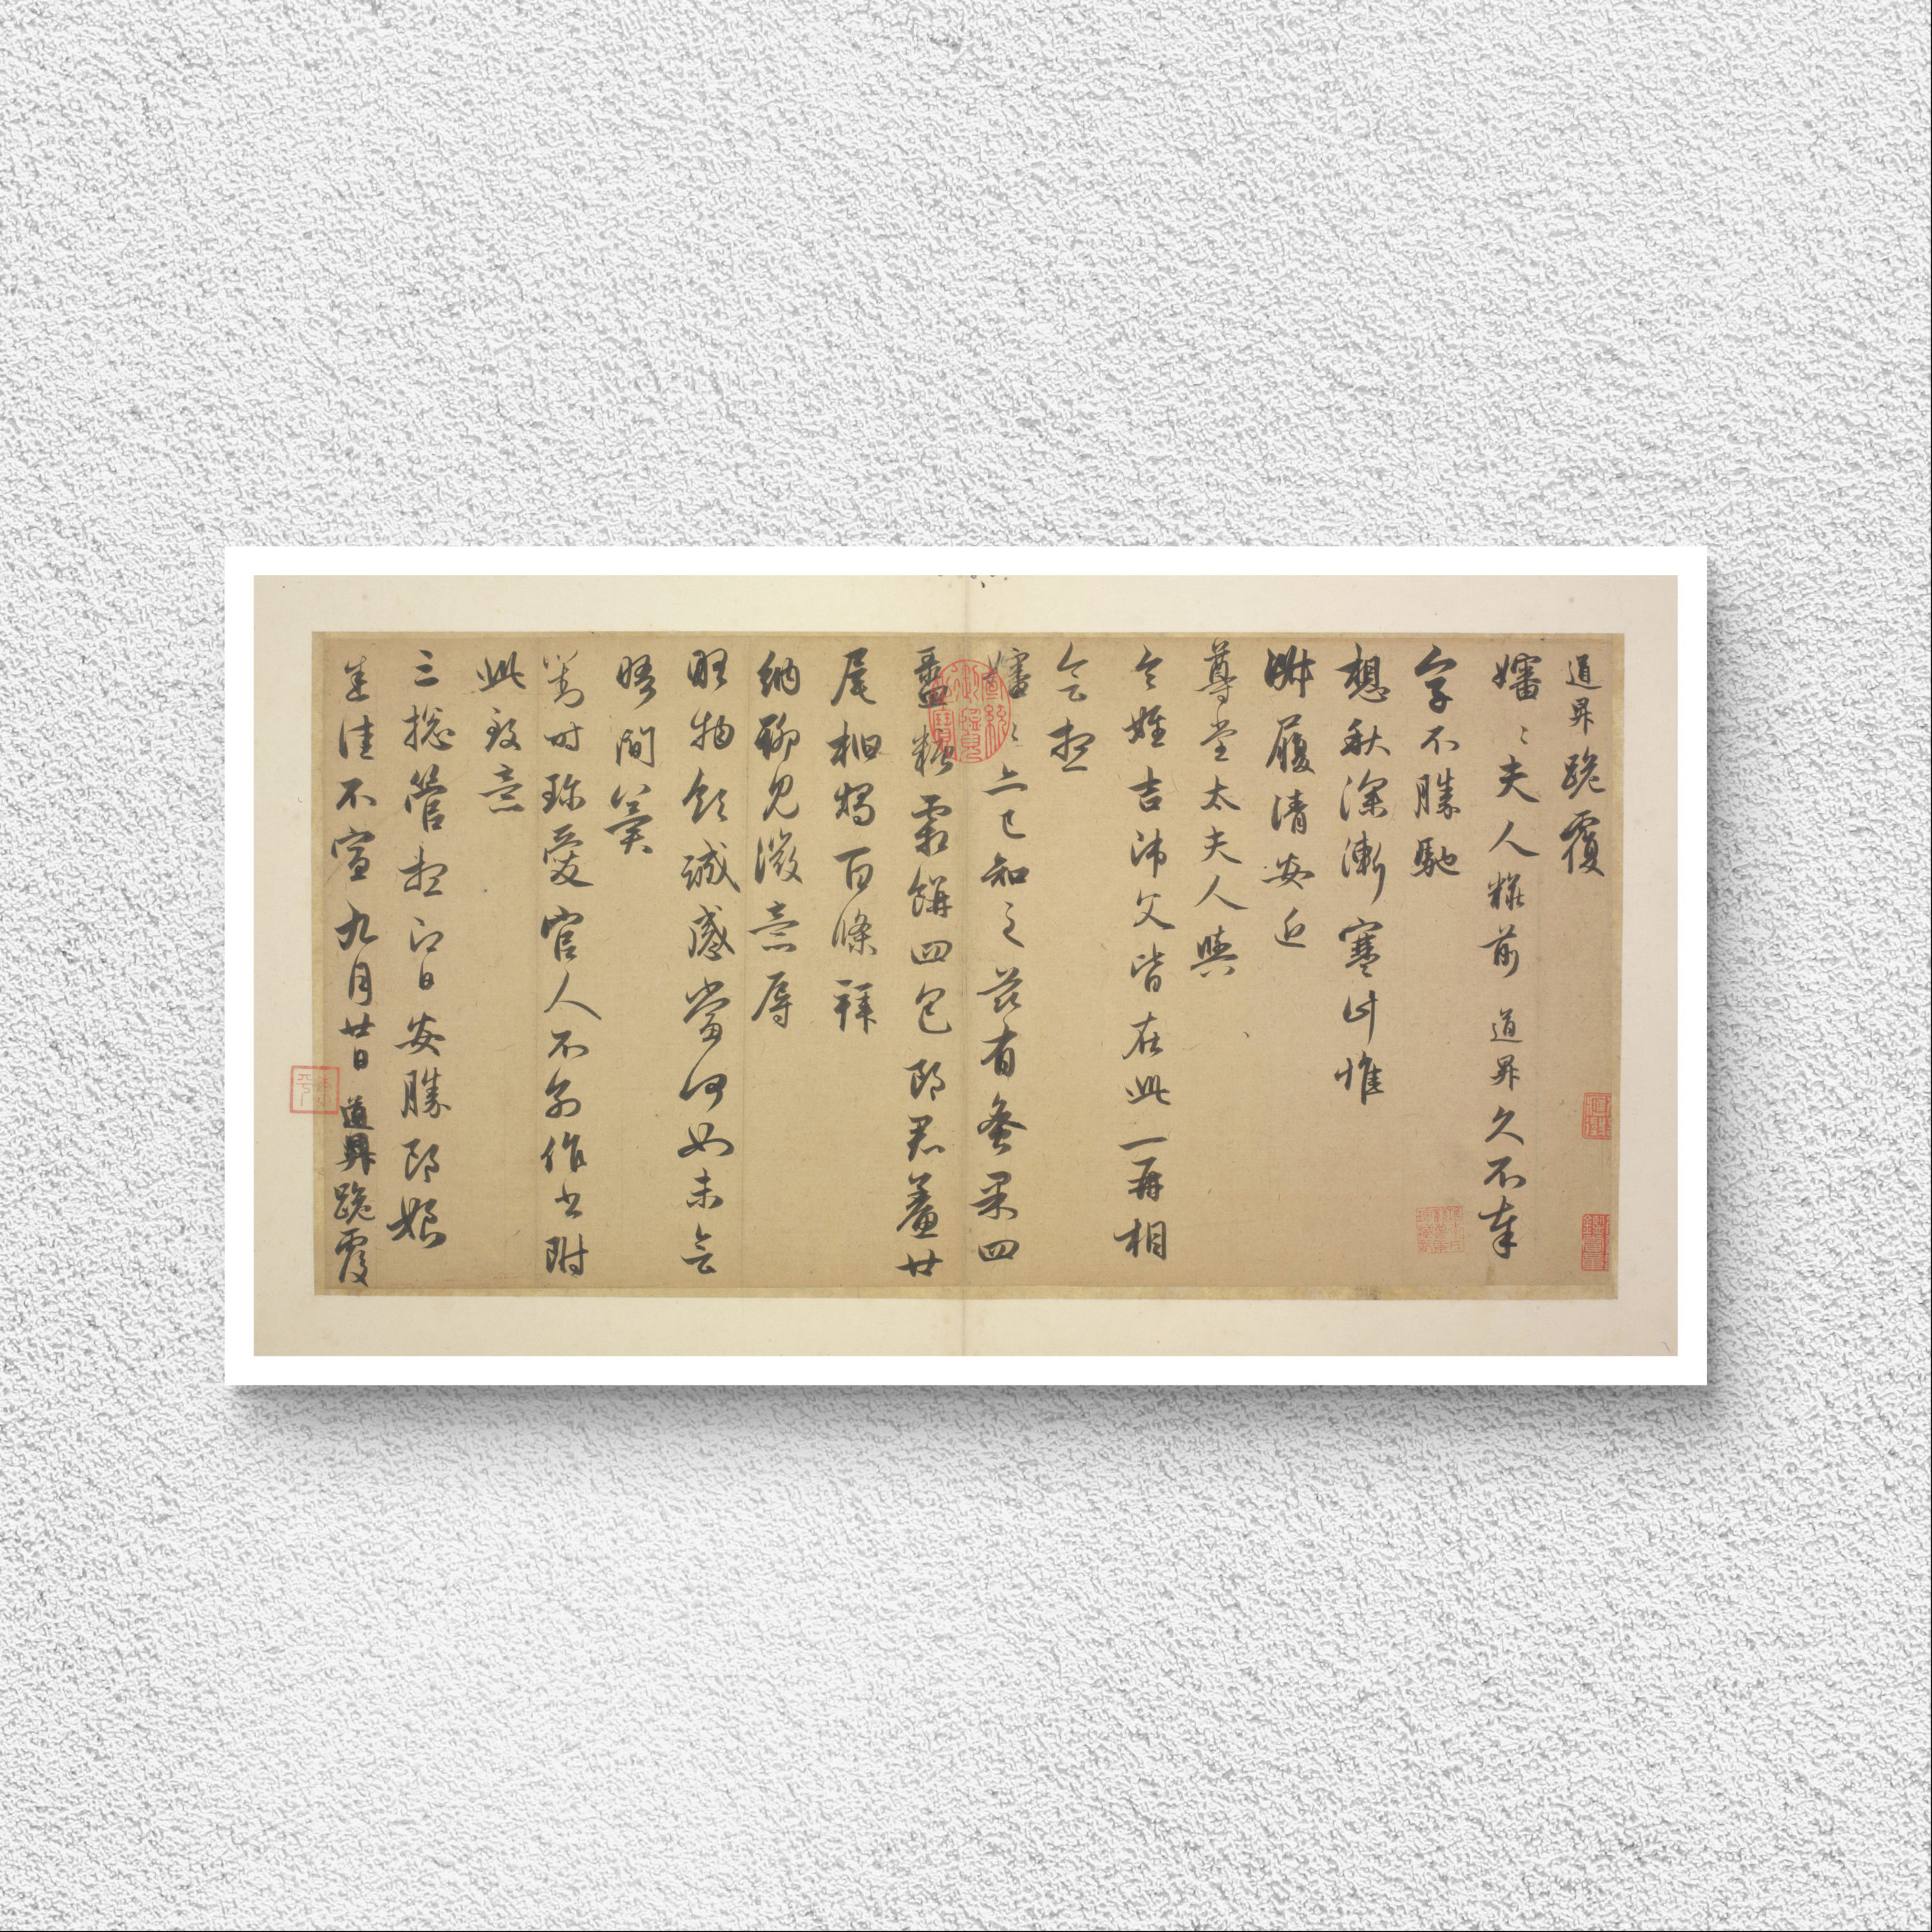 道昇跪覆
嬸〻夫人糚前道昇久不奉
字不勝馳
想秋深漸寒計惟
淑履清安近
尊堂太夫人與
令姪吉師父皆在此一再相
會想
嬸〻亦已知之茲有蜜果四
盝糖霜餅四包郎君鯗廿
尾桕燭百條拜
納聊見微意辱
略物領誠感當何如未會
晤間冀
對時珍愛官人不別作書附
此致意
三總管想即日安勝郎娘
悉佳不宣九月廿日道昇跪覆